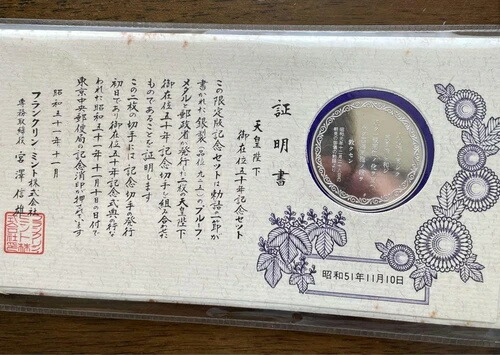 証明書
天皇陛下
御在位五十年記念セット
この限定版記念セットは勅語の一節が
書かれた銀製(品位九二五)のプルーフ・
メダルと郵政省が発行した二枚の天皇陛下
御在位五十年記念切手を組み合わせた
ものであることを証明します
この二枚の切手には記念切手の発行
初日であり御在位五十年記念式典の行な
われた昭和五十一年十一月十日の日付で
東京中央郵便局の記念消印が押してあります
昭和五十一年十一月
フランクリン・ミント株式会社
専務取締役 宮澤信雄
昭和51年11月10日